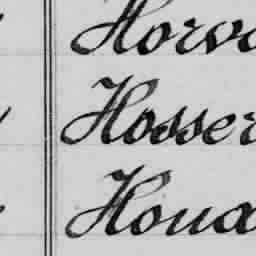 Horva
Hosser
Houa